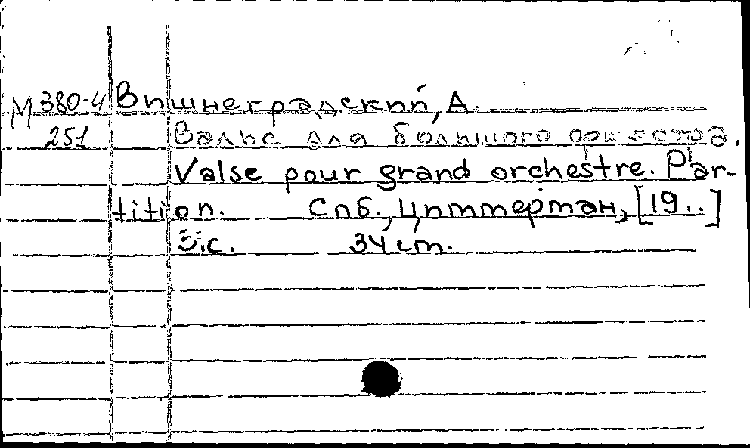 М 380-4 Вишнеградский, А.
251 Вальс для большого оркестра.
Valse pour grand orchestre. Par-
tition. Спб., Циммерман, [19..]
с. 34 cm.